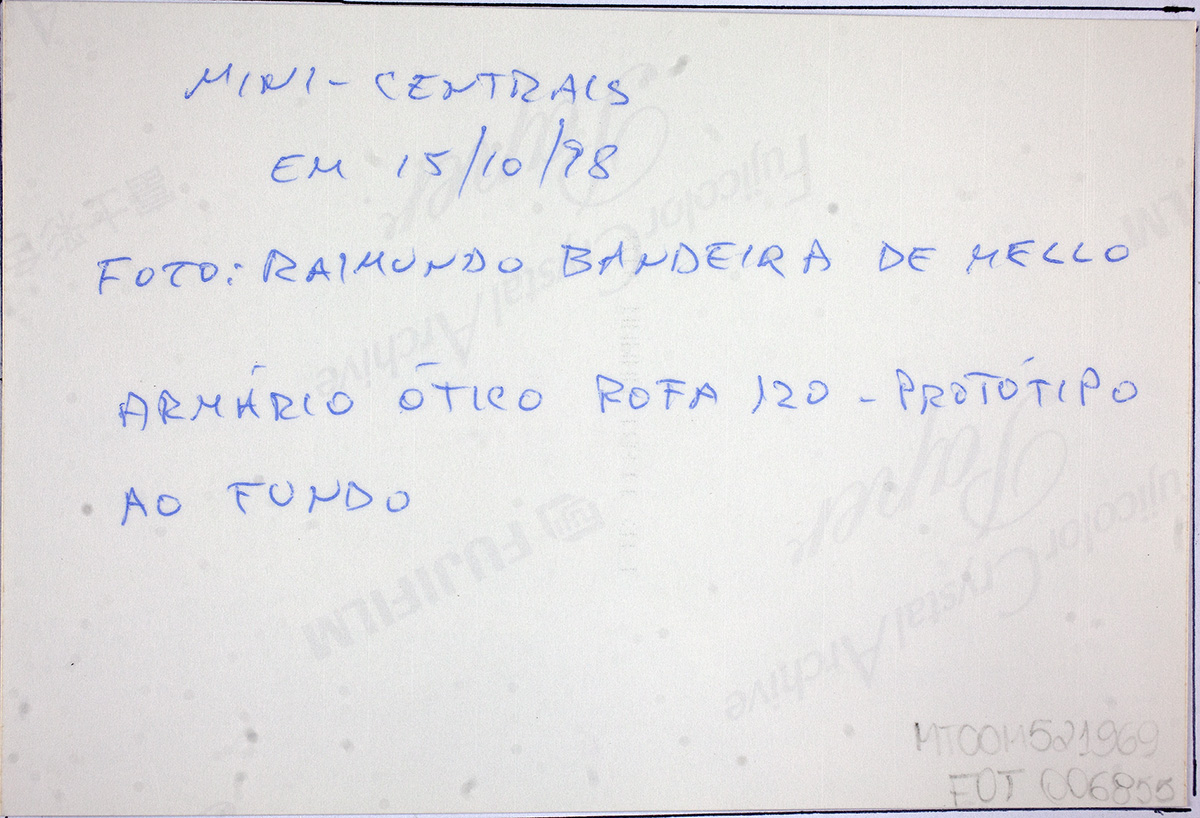 MINI-CENTRAIS
EM 15/10/98
FOTO: RAIMUNDO BANDEIRA DE MELLO
ARMÁRIO ÓTICO ROFA 120 - PROTÓTIPO
AO FUNDO
Fujicolor Crystal Archive
Paper
FUJIFILM
Fujicolor Crystal Archive
Paper
MTCOM521969
FOT 006855